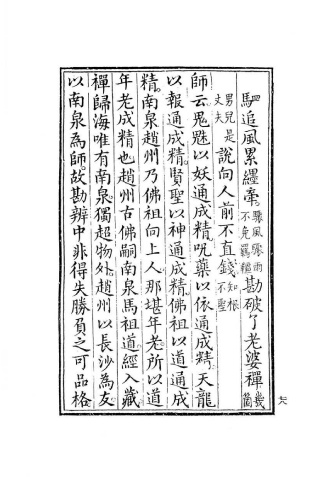 駟追風累纏牽驟風驟雨不免羈韁勘破了老婆禪幾箇
男兒是丈夫說向人前不直錢知根不聖
師云鬼魅以妖通成精呪藥以依通成精天龍
以報通成精賢聖以神通成精佛祖以道通成
精南泉趙州乃佛祖向上人那堪年老所以道
年老成精也趙州古佛嗣南泉馬祖道經入藏
禪歸海唯有南泉獨超物外趙州以長沙為友
以南泉為師故勘辨中非得失勝負之可品格